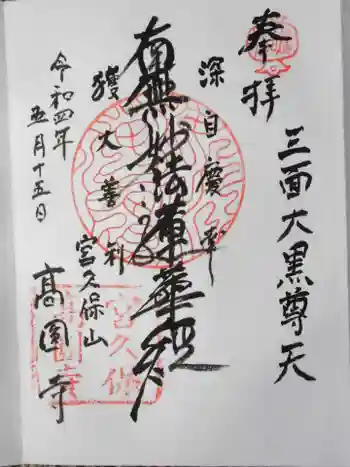 奉拝
三面大黒尊天
深自慶幸
南無妙法蓮華経
獲大善利
宮久保山
高圓寺
令和四年
五月十五日
宮久保